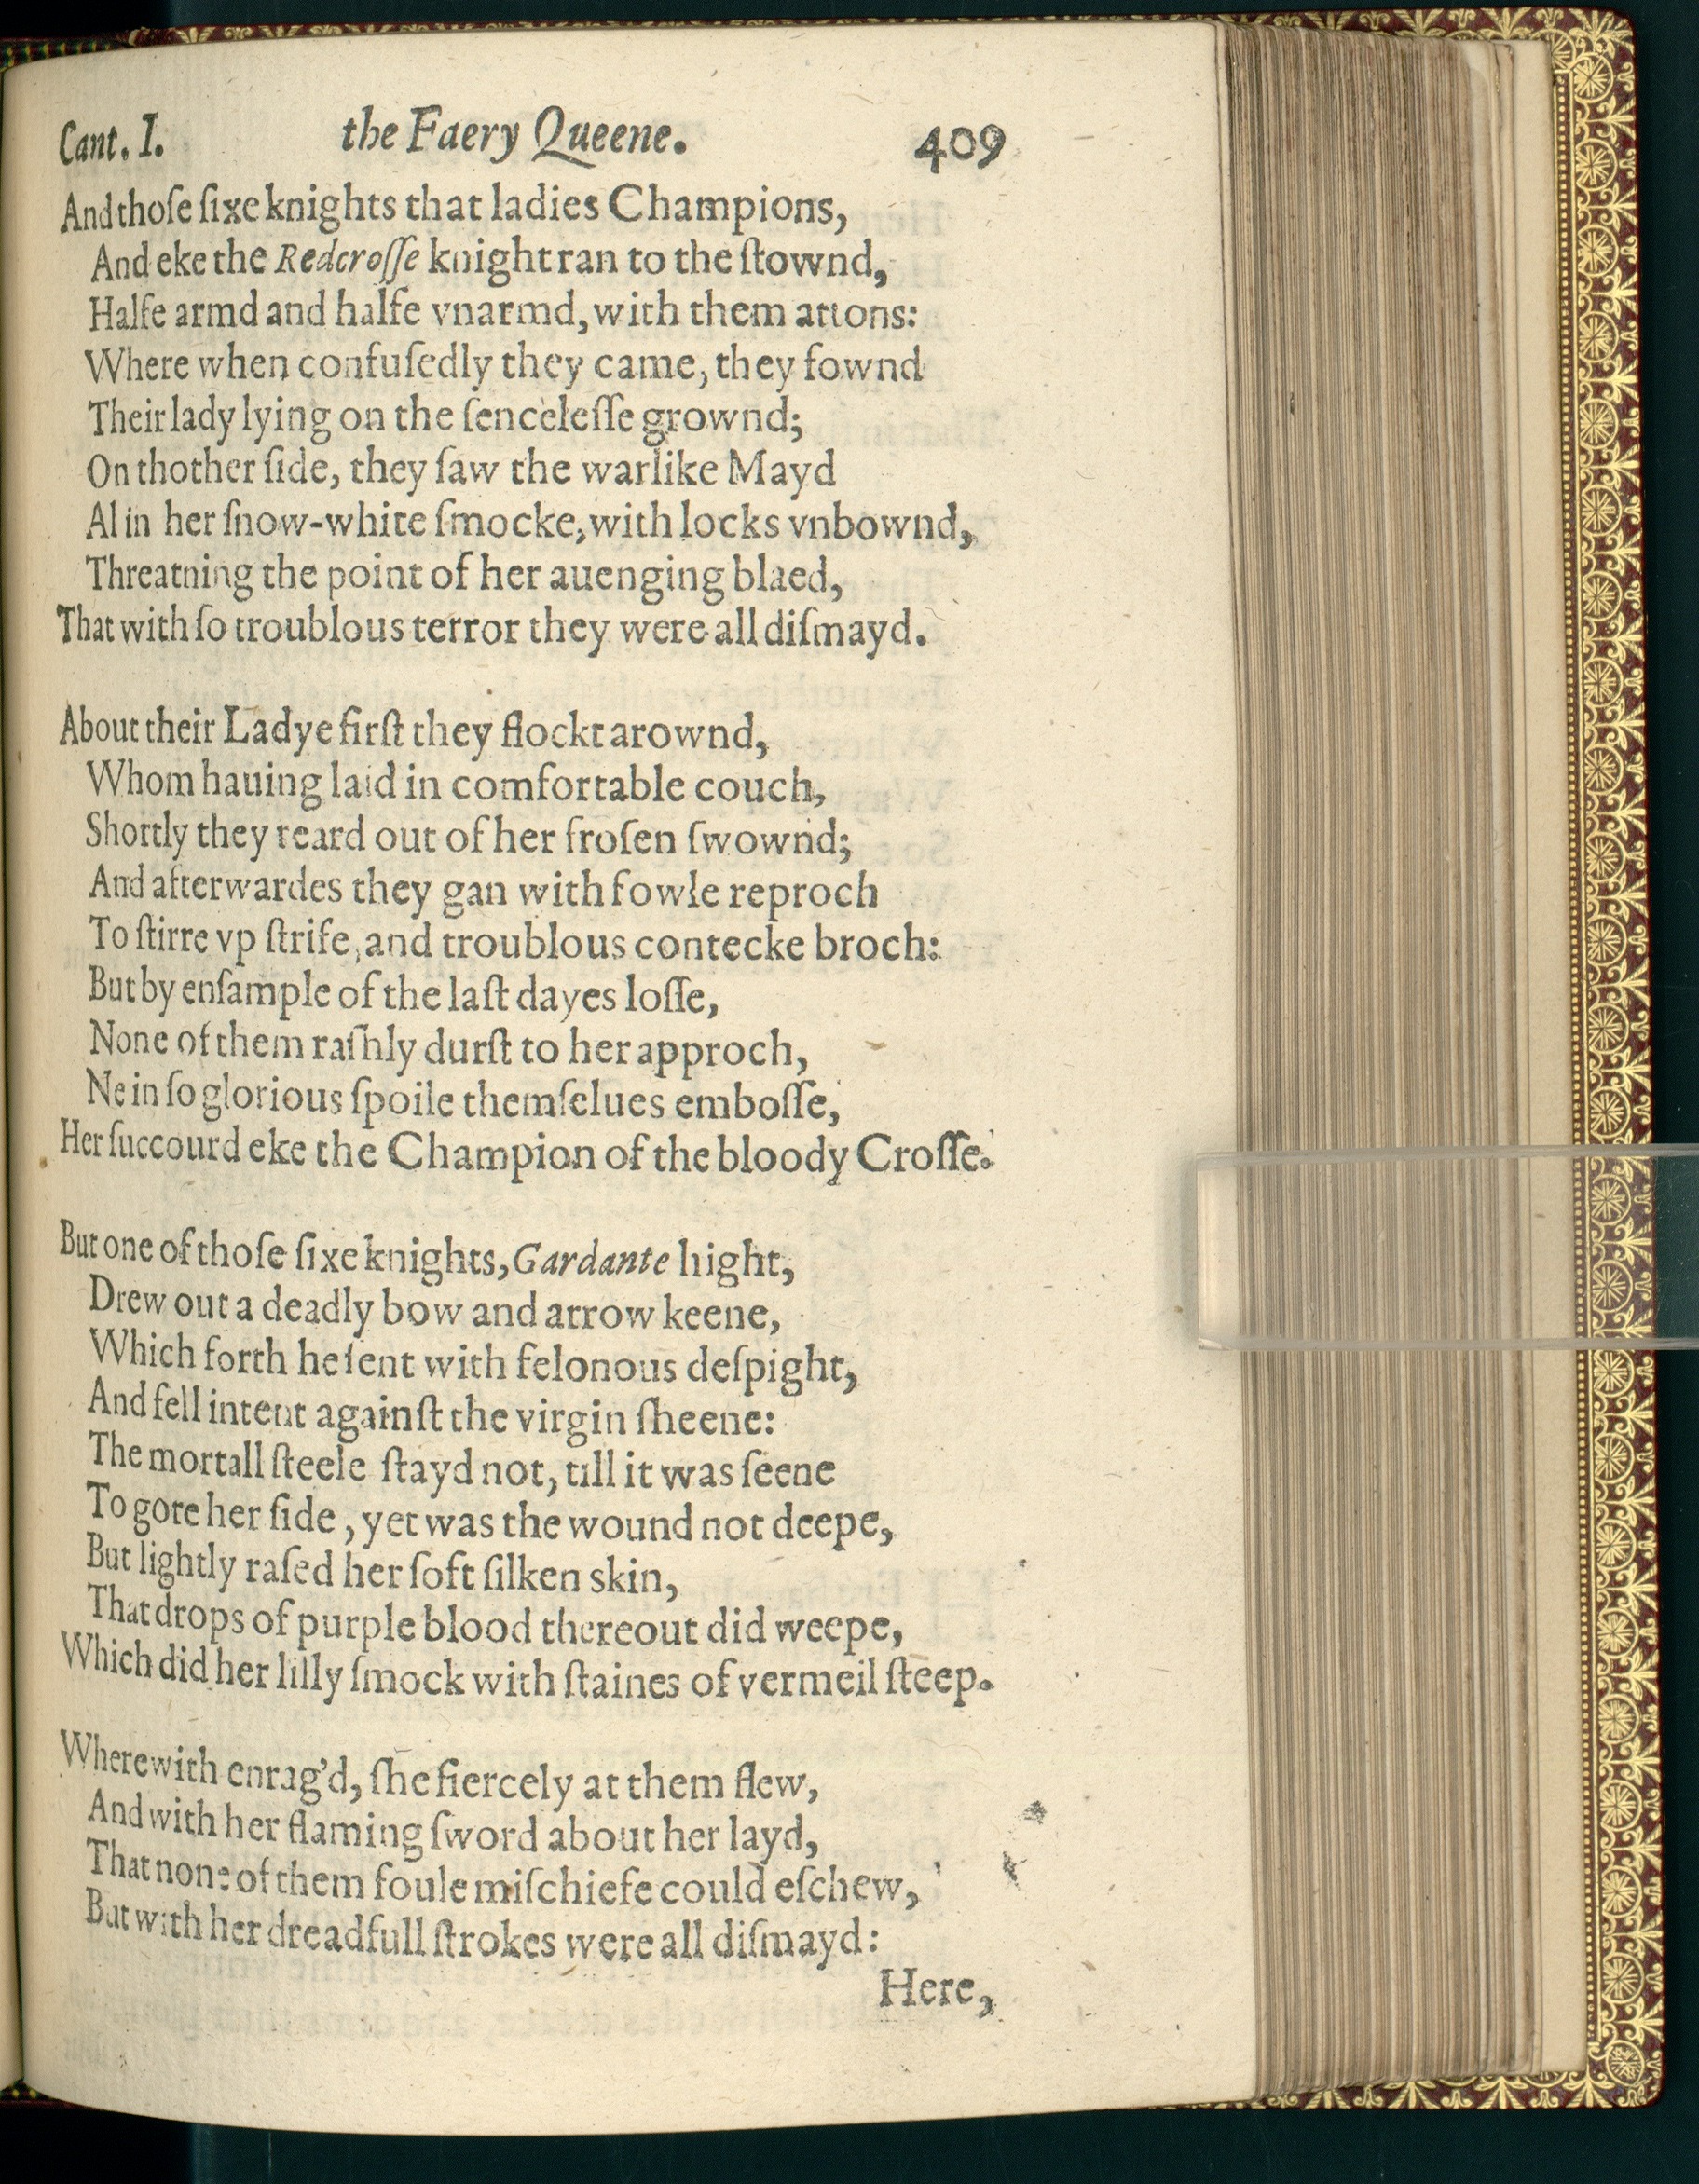 Cant. I. the Faery Queene. 409
And thoſe ſixe knights that ladies Champions,
And eke the Redcroſſe knight ran to the ſtownd,
Halfe armd and halfe vnarmd, with them attons:
Where when confuſedly they came, they fownd
Their lady lying on the ſenceleſſe grownd;
On thother ſide, they ſaw the warlike Mayd
Al in her ſnow-white ſmocke, with locks vnbownd,
Threatning the point of her auenging blaed,
That with ſo troublous terror they were all diſmayd.
About their Ladye firſt they flockt arownd,
Whom hauing laid in comfortable couch,
Shortly they reard out of her froſen ſwownd;
And afterwardes they gan with fowle reproch
To ſtirre vp ſtrife, and troublous contecke broch:
But by enſample of the laſt dayes loſſe,
None of them raſhly durſt to her approch,
Ne in ſo glorious ſpoile themſelues emboſſe,
Her ſuccourd eke the Champion of the bloody Croſſe.
But one of thoſe ſixe knights, Gardante hight,
Drew out a deadly bow and arrow keene,
Which forth he ſent with felonous deſpight,
And fell intent againſt the virgin ſheene:
The mortall ſteele ſtayd not, till it was ſeene
To gore her ſide, yet was the wound not deepe,
But lightly raſed her ſoft ſilken skin,
That drops of purple blood thereout did weepe,
Which did her lilly ſmock with ſtaines of vermeil ſteep.
Wherewith enrag'd, ſhe fiercely at them flew,
And with her flaming ſword about her layd,
That none of them foule miſchiefe could eſchew,
But with her dreadfull ſtrokes were all diſmayd:
Here,